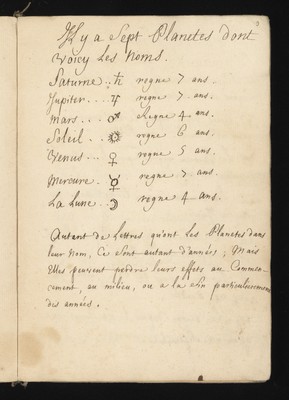 Il y a Sept Planetes dont
voicy Les Noms.
Saturne .. ♄ regne 7 ans.
Jupiter ... ♃ regne 7 ans.
Mars ... ♂ Regne 4 ans.
Soleil .. ☉ regne 6 ans.
Venus ... ♀ regne 5 ans.
Mercure . ☿ regne 7 ans.
La Lune .. ☽ regne 4 ans.
Autant de Lettres qu'ont Les Planetes dans
leur Nom, Ce Sont autant d'années ; Mais
Elles peuvent perdre leurs effets au Commen-
cement, au milieu, ou a la fin particulierement
des années .